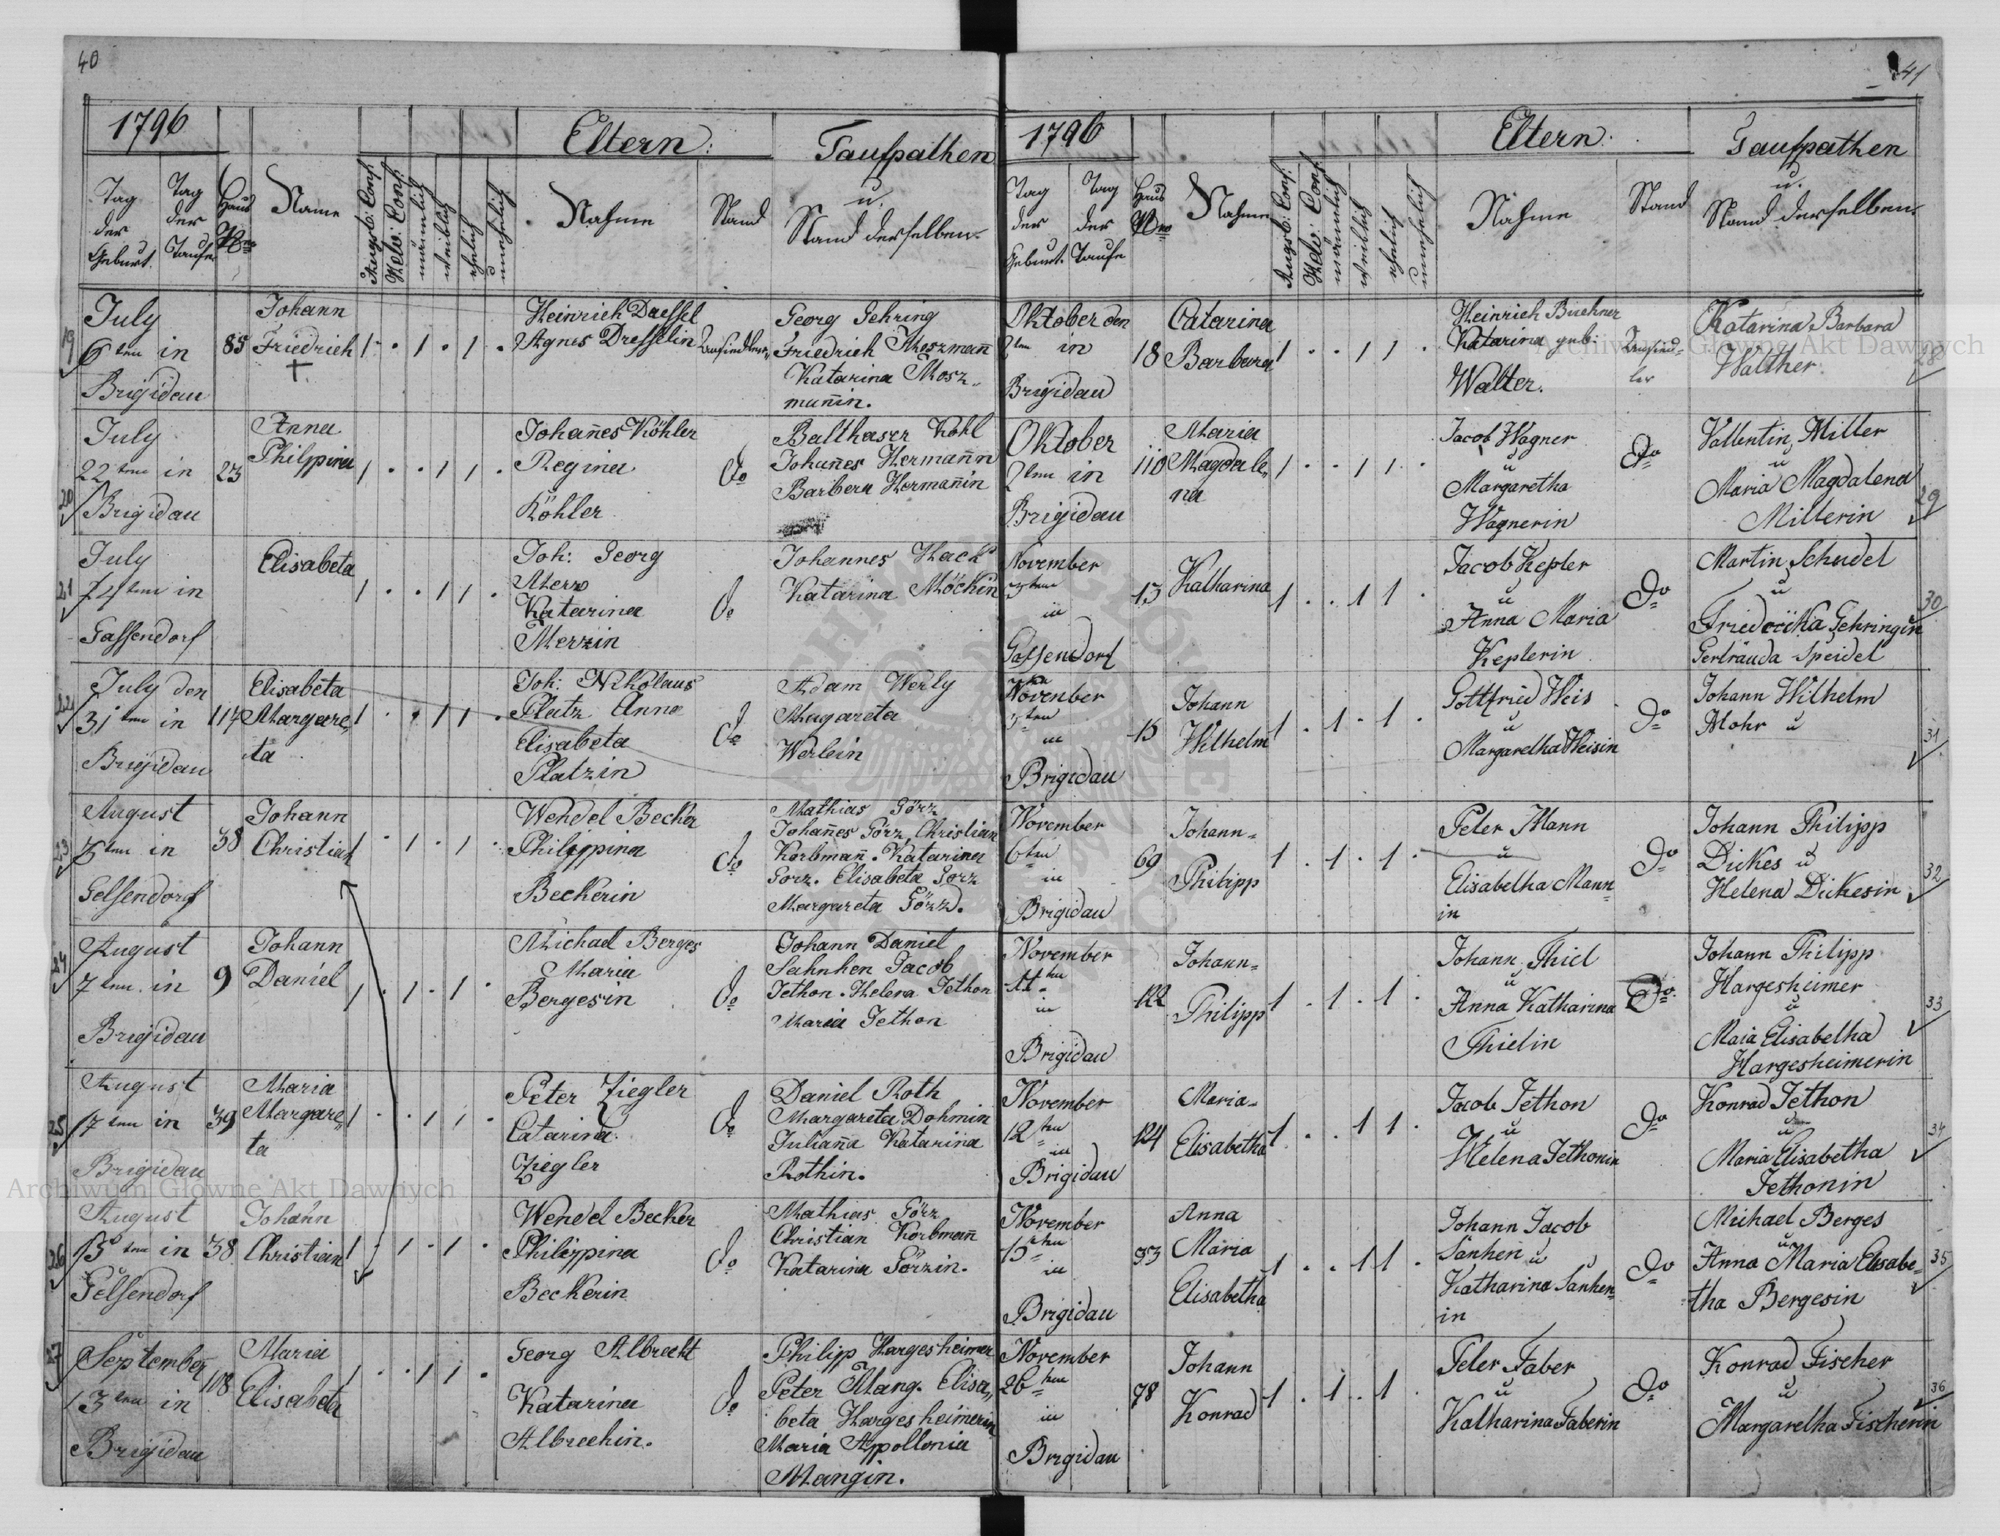 40
1796
Eltern:
Taufpathen
u.
Stand derselben.
Tag
der
Geburt.
Tag
der
Taufe
Haus
Nro
Name
Augsb: Conf.
Helv: Conf.
männlich
weiblich
ehelich
unehelich
Nahme
Stand
19
July
6ten in
Brigidau
85
Johann
Friedrich
1 . 1 . 1 .
Heinrich Dressel
Agnes Dresselin
Ansiedler
Georg Gehring
Friedrich Moszmañ
Katarina Mosz-
mañin.
20
July
22ten in
Brigidau
23
Anna
Philppina
1 . . 1 1 .
Johañes Köhler
Regina
Köhler
do
Balthaser Kohl
Johañes Hermañn
Barbera Hermañin
21
July
in
Gassendorf
Elisabeta
1 . . 1 1 .
Joh: Georg
Merz
Katarina
Merzin
do
Johannes Hack
Katarina Möckin
22
July den
31ten in
Brigidau
114
Elisabeta
Margare-
ta
1 . . 1 1
Joh: Nikolaus
Platz Anna
Elisabeta
Platzin
do
Adam Werly
Magareta
Werlein
23
August
ten in
Gelsendorf
38
Johann
Christian
1 . 1 . 1 .
Wendel Becker
Philippina
Beckerin
do
Mathias Görz
Johañes Görz Christian
Korbmañ. Katarina
Gorz. Elisabeta Gorz
Margareta Görz.
24
August
7ten in
Brigidau
9
Johann
Daniel
1 . 1 . 1 .
Michael Berges
Maria
Bergesin
do
Johann Daniel
Sahnhen Jacob
Jethon. Helena Jethon
Maria Jethon
25
August
17ten in
Brigidau
39
Maria
Margare-
ta
1 . . 1 1 .
Peter Ziegler
Catarina
Ziegler
do
Daniel Roth
Margareta Dohmin
Juliaña Katarina
Rothin.
26
August
15ten in
Gelsendorf
38
Johann
Christian
1 . 1 . 1 .
Wendel Becker
Philippina
Beckerin
do
Mathias Görz
Christian Korbmañ
Katarina Görzin.
27
September
13ten in
Brigidau
108
Maria
Elisabeta
1 . . 1 1 .
Georg Albrecht
Katarina
Albrechin.
do
Philipp Hargesheimer
Peter Mang. Elisa-
beta Hargesheimerin
Maria Appollonia
Mangin.
41
1796
Eltern:
Taufpathen
u.
Stand derselben.
Tag
der
Geburt.
Tag
der
Taufe
Haus
Nro
Nahme
Augsb: Conf.
Helv: Conf.
männlich
weiblich
ehelich
unehelich
Nahme
Stand
Oktober den
2ten in
Brigidau
18
Catarina
Barbara
1 . . 1 1 .
Heinrich Buchner
Katarina geb:
Walter.
Ansied-
ler
Katarina Barbara
Walther
28
Oktober
2ten in
Brigidau
110
Maria
Magdale-
na
1 . . 1 1 .
Jacob Wagner
u
Margaretha
Wagnerin
do
Vallentin Miller
u
Maria Magdalena
Millerin
29
November
3ten
in
Gassendorf
13
Katharina
1 . . 1 1 .
Jacob Kepler
u
Anna Maria
Keplerin
do
Martin Schudel
u
Friedericka Gehringin
Gertrauda Speidel
30
November
5ten
in
Brigidau
15
Johann
Wilhelm
1 . 1 . 1 .
Gottfried Weis
u
Margaretha Weisin
do
Johann Wilhelm
Mohr u
31
November
6ten
in
Brigidau
69
Johann-
Philipp
1 . 1 . 1 .
Peter Mann
u
Elisabetha Mann-
in
do
Johann Philipp
Dickes u
Helena Dickesin
32
November
11ten
in
Brigidau
122
Johann-
Philipp
1 . 1 . 1 .
Johann Thiel
u
Anna Katharina
Thielin
do
Johann Philipp
Hargesheimer
u
Maia Elisabetha
Hargesheimerin
33
November
12ten
in
Brigidau
124
Maria-
Elisabetha
1 . . 1 1 .
Jacob Jethon
u
Helena Jethonin
do
Konrad Jethon
u
Maria Elisabetha
Jethonin
34
November
15ten
in
Brigidau
93
Anna
Maria
Elisabetha
1 . . 1 1 .
Johann Jacob
Sanhen u
Katharina Sanhen-
in
do
Michael Berges
u
Anna Maria Elisabe-
tha Bergesin
35
November
26ten
in
Brigidau
78
Johann
Konrad
1 . 1 . 1 .
Peter Faber
u
Katharina Faberin
do
Konrad Fischer
u
Margaretha Fischerin
36
Archiwum Główne Akt Dawnych
Archiwum Główne Akt Dawnych